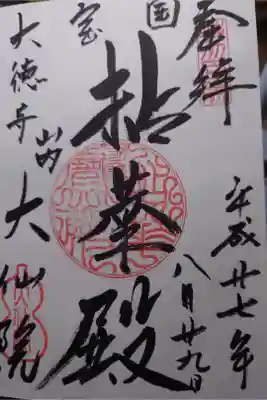 奉拝
平成廿七年
八月廿九日
国宝
拈華殿
大徳寺山内
大仙院